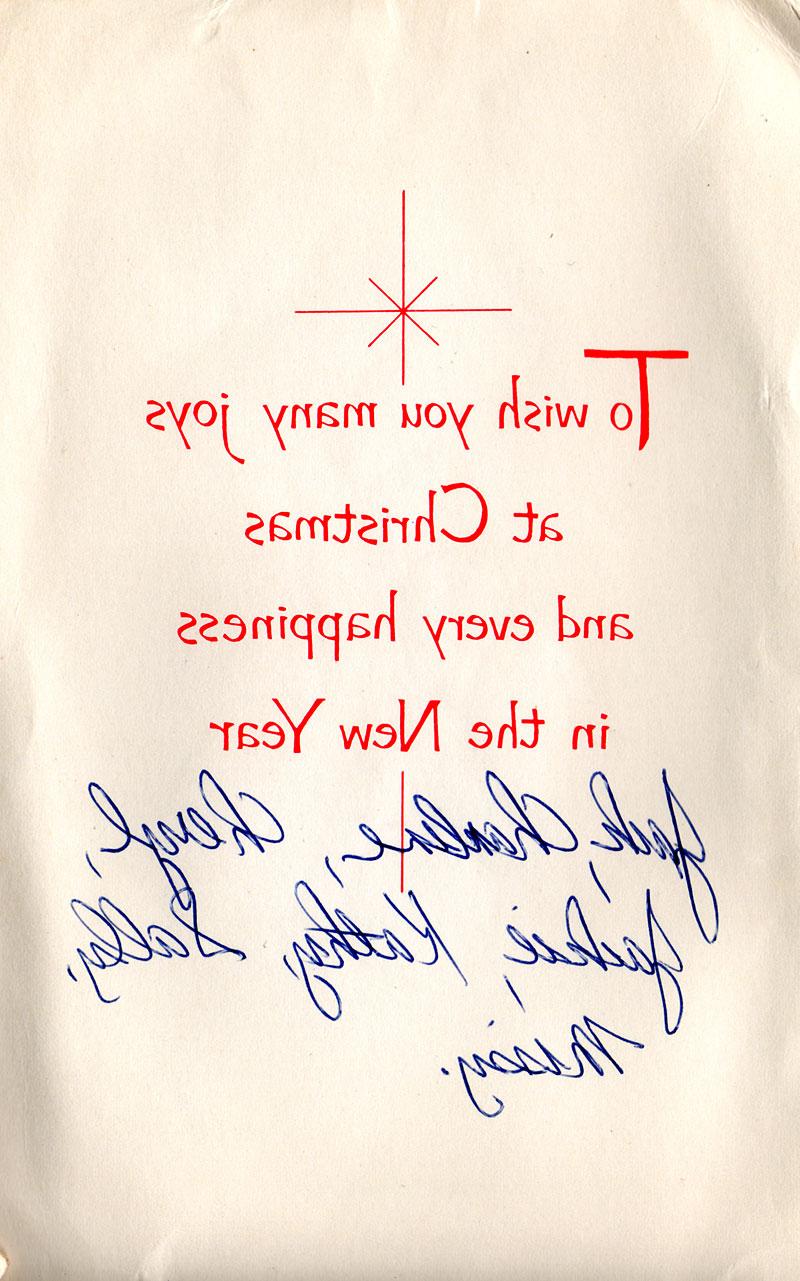 To wish you many joys
at Christmas
and every happiness
in the New Year
Jack, Charline, Cheryl,
Jackie, Kathy, Sally,
Missy.